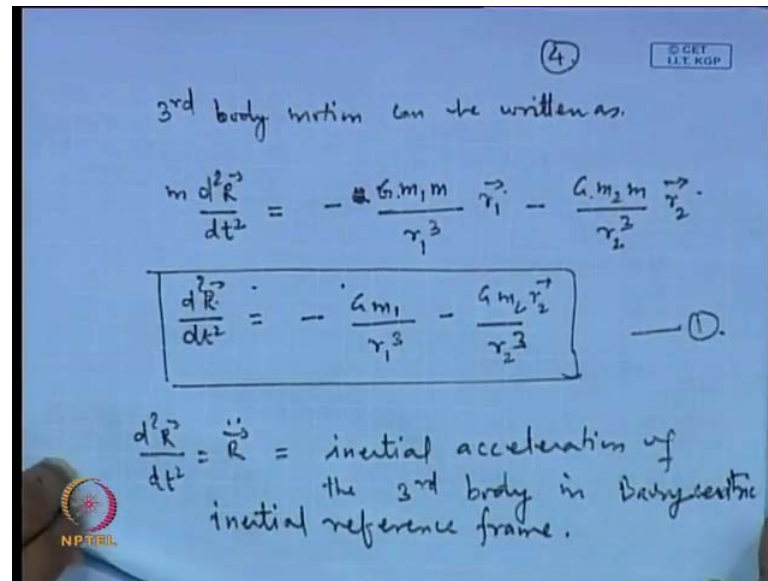 4.
© CET
I.I.T. KGP
3rd body motion can be written as.
m d²R⃗/dt² = - G.m₁m/r₁³ r⃗₁. - G.m₂m/r₂³ r⃗₂.
d²R⃗/dt² = - Gm₁/r₁³ - Gm₂r⃗₂/r₂³ —— ①.
d²R⃗/dt² = R⃗̈ = inertial acceleration of
the 3rd body in Barycentric
inertial reference frame.
NPTEL